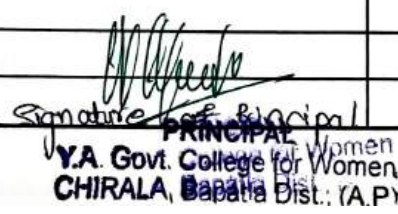 Signature of Principal
PRINCIPAL
Y.A. Govt. College for Women
CHIRALA, Bapatla Dist.; (A.P)